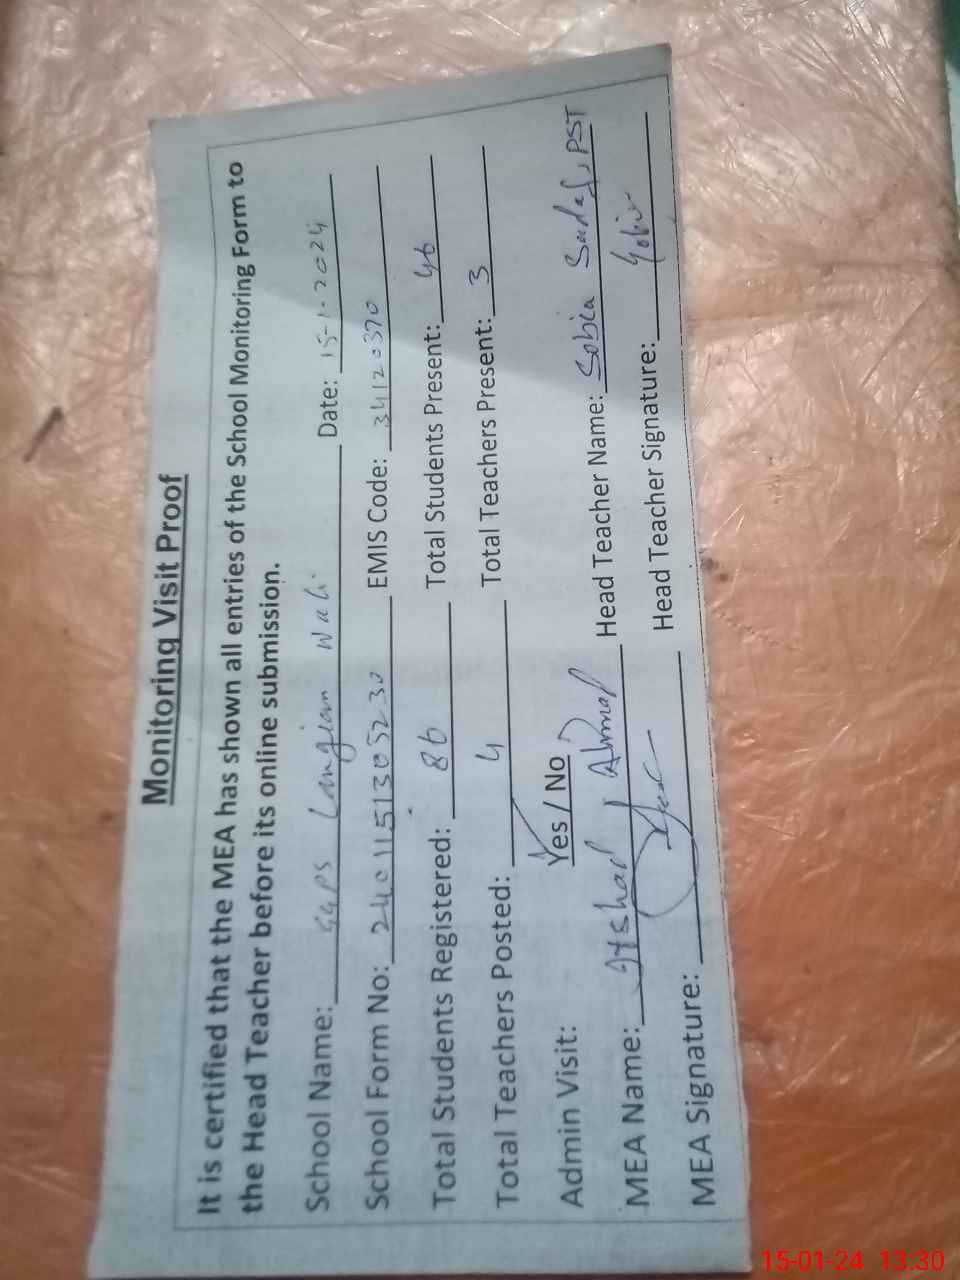 Monitoring Visit Proof
It is certified that the MEA has shown all entries of the School Monitoring Form to
the Head Teacher before its online submission.
School Name: GGPS Langian Wali Date: 15-1-2024
School Form No: 2401151305230 EMIS Code: 34120370
Total Students Registered: 86 Total Students Present: 46
Total Teachers Posted: 4 Total Teachers Present: 3
Admin Visit: Yes / No
MEA Name: Irshad Ahmad Head Teacher Name: Sobia Sadaf, PST
MEA Signature: Head Teacher Signature: Sobia
15-01-24 13:30